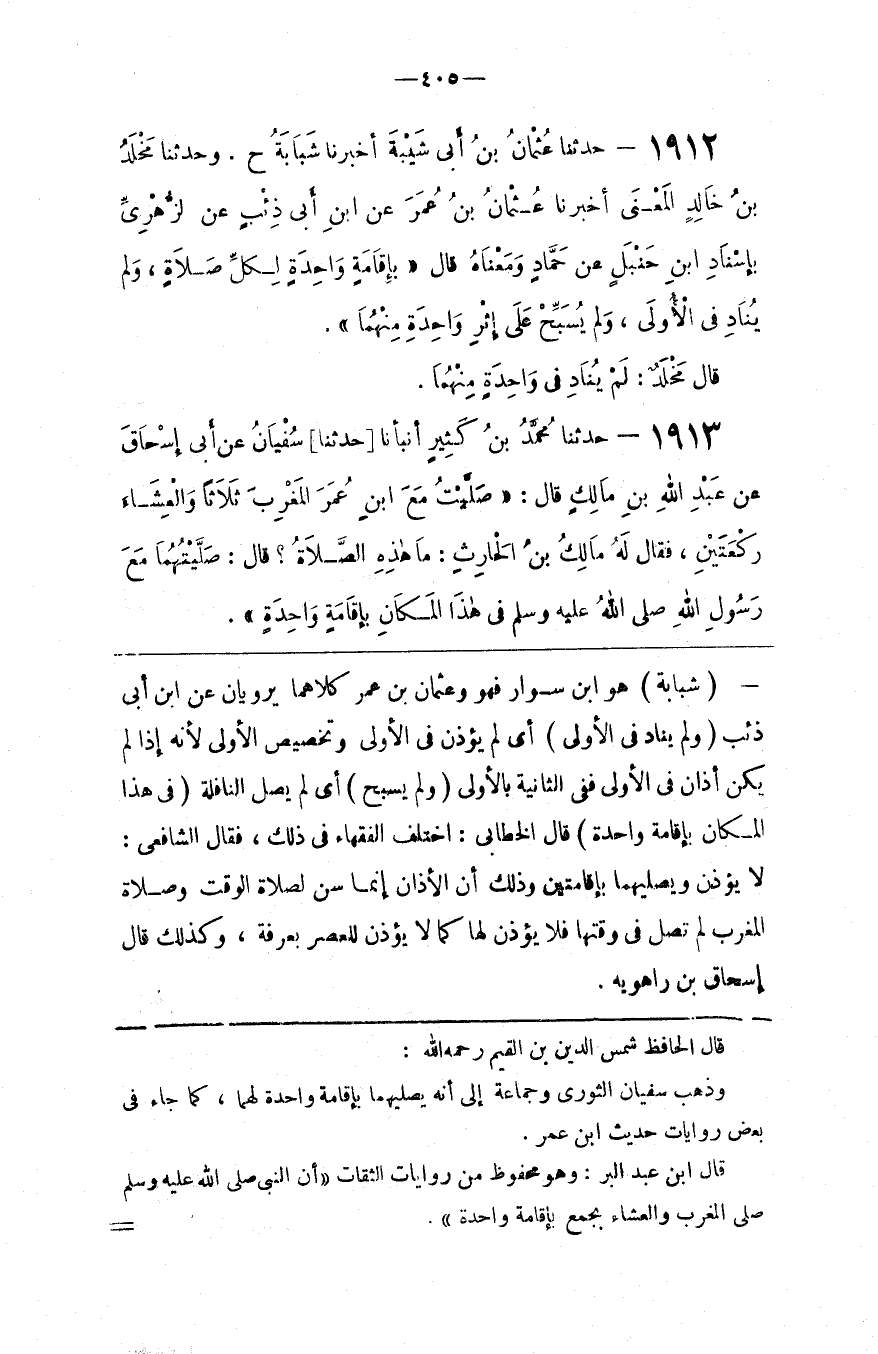 —٤٠٥—
١٩١٢ — حدثنا عُثْمَانُ بنُ أَبى شَيْبَةَ أخبرنا شَبَابَةُ ح . وحدثنا مَخْلَدُ
بنُ خَالِدٍ المَعْنَى أخبرنا عُثْمَانُ بنُ عُمَرَ عن ابنِ أَبى ذِئْبٍ عن لزُّهْرِىِّ
بإِسْنَادِ ابنِ حَنْبَلٍ عن حَمَّادٍ وَمَعْنَاهُ قال « بإِقَامَةٍ وَاحِدَةٍ لِكلِّ صَلاَةٍ ، وَلم
يُنَادِ فى الْأُولَى ، وَلم يُسَبِّحْ عَلَى إِثْرِ وَاحِدَةٍ مِنْهُمَا » .
قال مَخْلَدٌ : لَمْ يُنَادِ فى وَاحِدَةٍ مِنْهُمَا .
١٩١٣ — حدثنا مُحمَّدُ بنُ كَثِيرٍ أنبأنا [حدثنا] سُفْيَانُ عن أَبى إِسْحَاقَ
عن عَبْدِ اللهِ بنِ مَالِكٍ قال : « صَلَّيْتُ مَعَ ابنِ عُمَرَ المَغْرِبَ ثَلَاثاً وَالْعِشَاء
ركْعَتَيْنِ ، فقال لَهُ مالِكُ بنُ الحَارِثِ : مَا هٰذِهِ الصَّلاَةُ ؟ قال : صَلَّيْتُهُمَا مَعَ
رَسُولِ اللهِ صلى اللهُ عليه وسلم فى هٰذَا المَكَانِ بإِقَامَةٍ وَاحِدَةٍ » .
— ( شبابة ) هو ابن سوار فهو وعثمان بن عمر كلاهما يرويان عن ابن أبى
ذئب ( ولم يناد فى الأولى ) أى لم يؤذن فى الأولى وتخصيص الأولى لأنه إذا لم
يكن أذان فى الأولى ففى الثانية بالأولى ( ولم يسبح ) أى لم يصل النافلة ( فى هذا
المكان بإقامة واحدة ) قال الخطابى : اختلف الفقهاء فى ذلك ، فقال الشافعى :
لا يؤذن ويصليهما بإقامتين وذلك أن الأذان إنما سن لصلاة الوقت وصلاة
المغرب لم تصل فى وقتها فلا يؤذن لها كما لا يؤذن للعصر بعرفة ، وكذلك قال
إسحاق بن راهويه .
قال الحافظ شمس الدين بن القيم رحمه الله :
وذهب سفيان الثورى وجماعة إلى أنه يصليهما بإقامة واحدة لهما ، كما جاء فى
بعض روايات حديث ابن عمر .
قال ابن عبد البر : وهو محفوظ من روايات الثقات «أن النبى صلى الله عليه وسلم
صلى المغرب والعشاء بجمع بإقامة واحدة » .
=